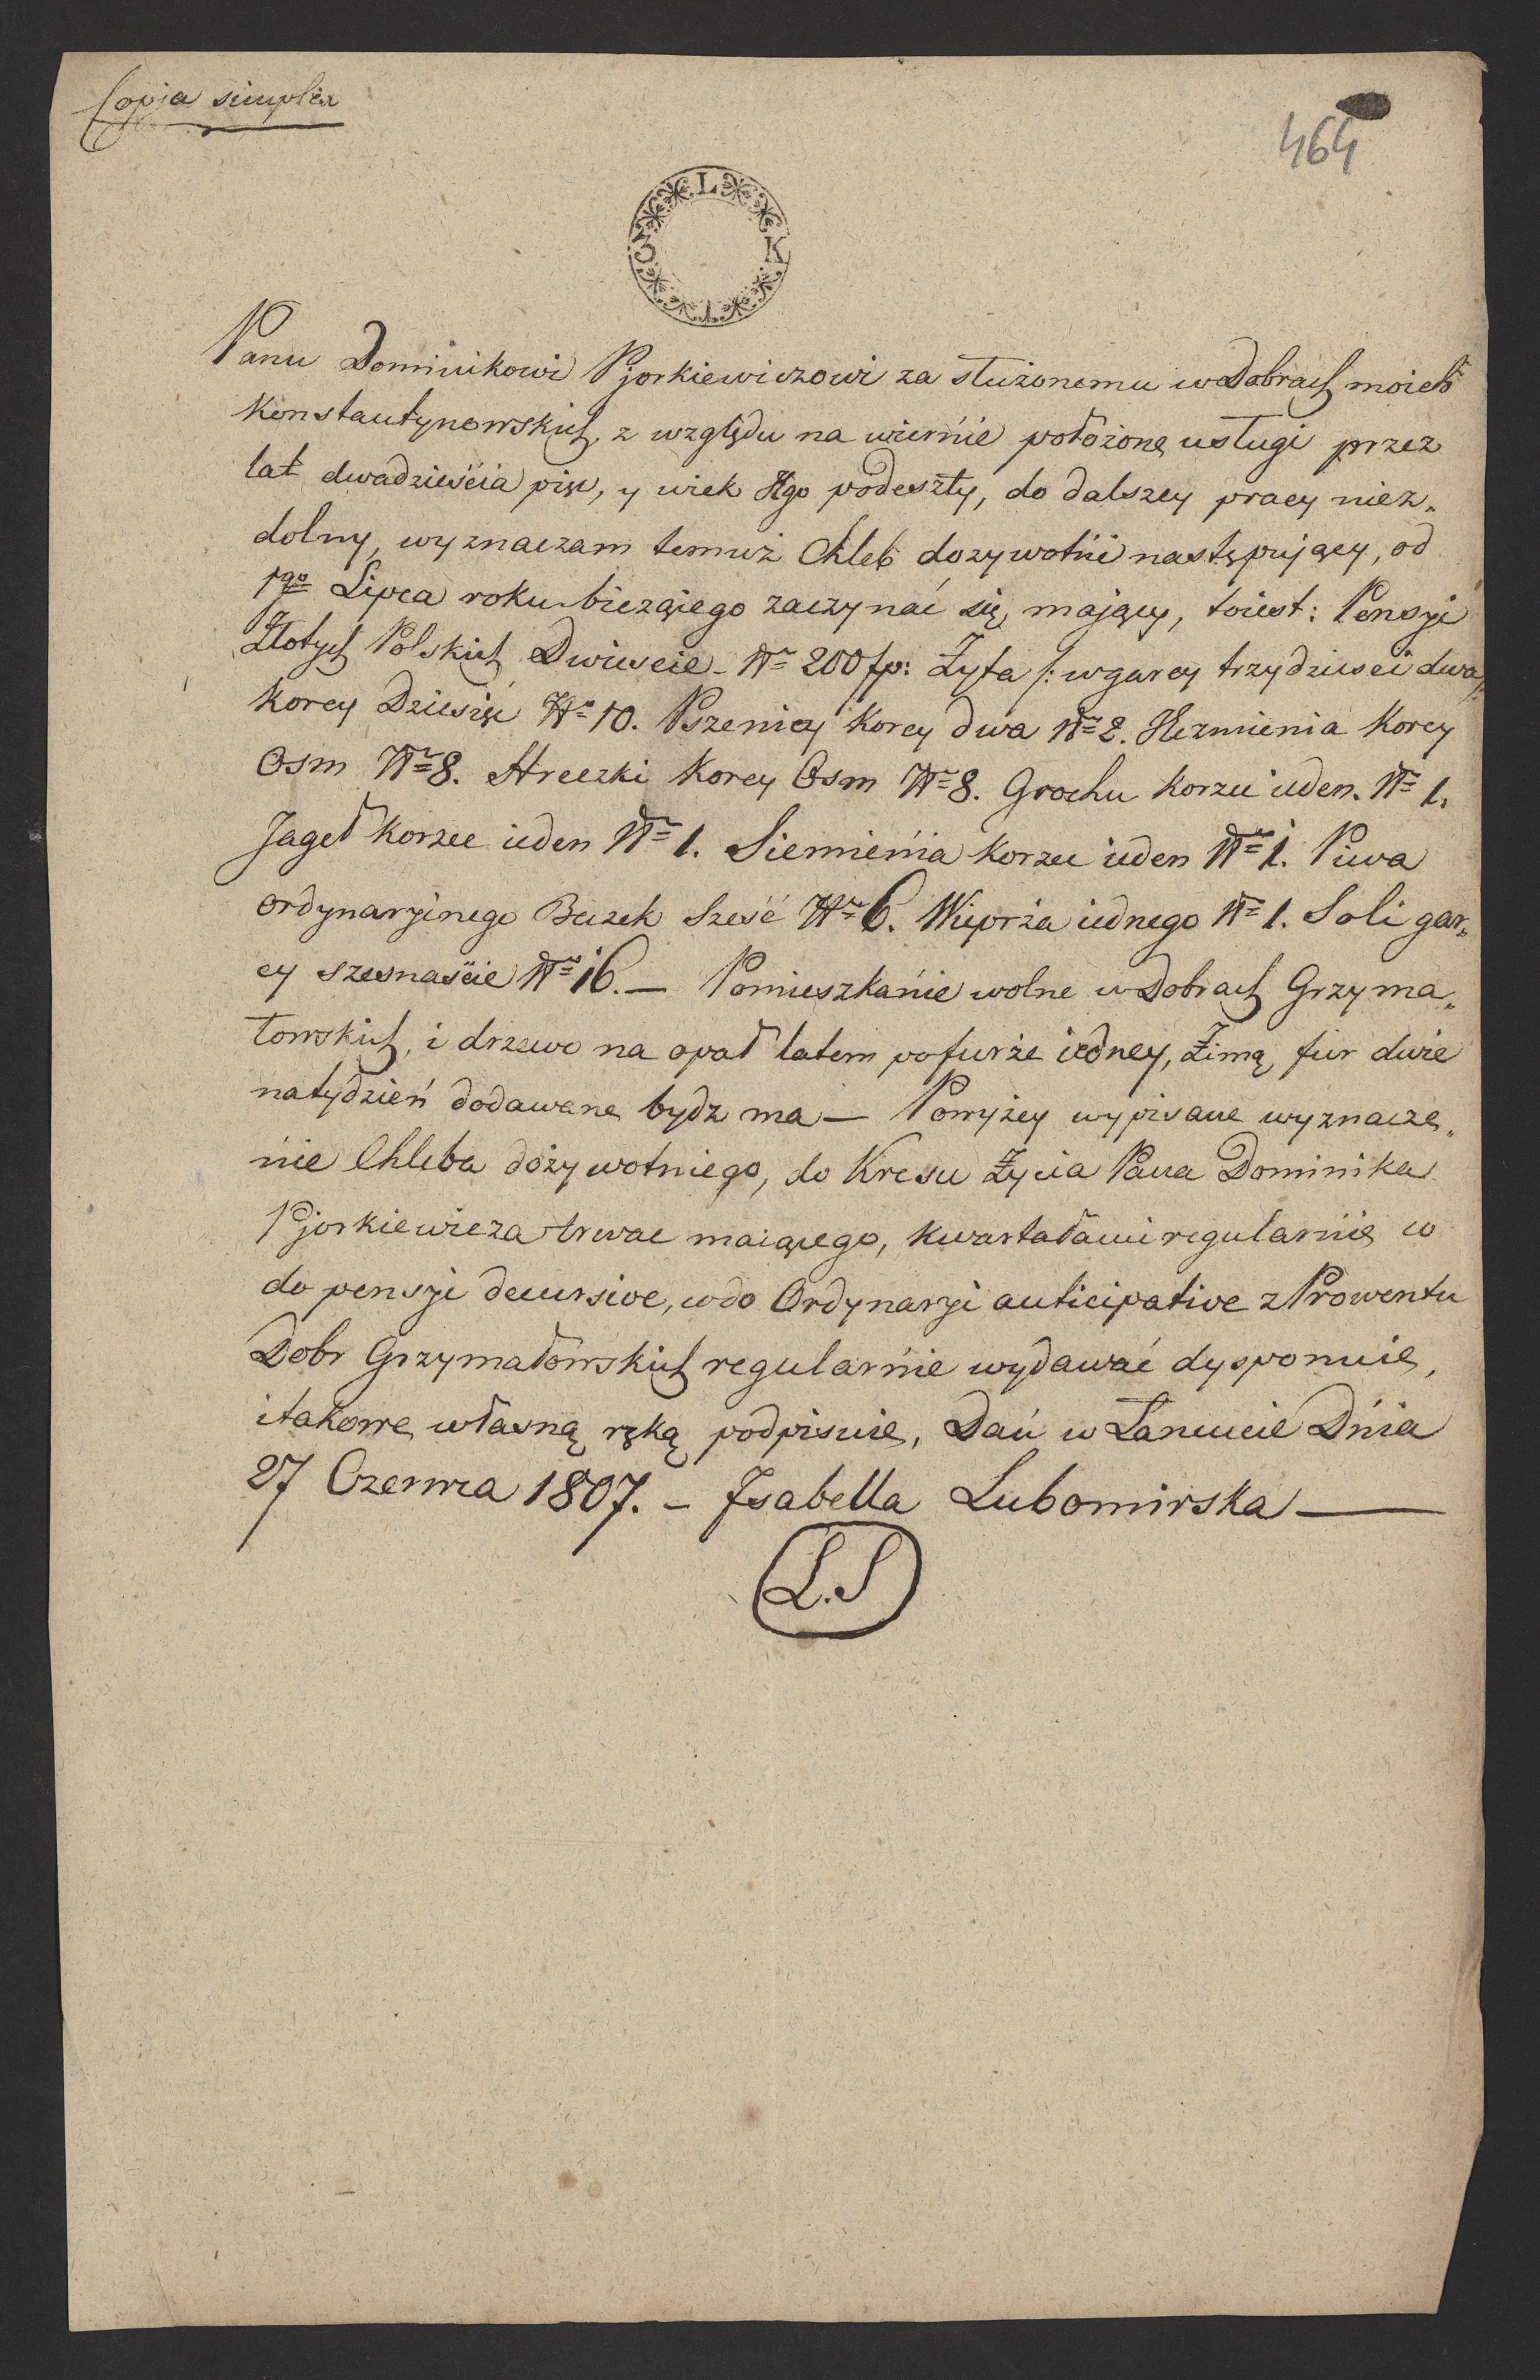 Copja simplex
464
L
3 K
1
Panu Dominikowi Pjorkiewiczowi za służonemu w Dobrach moich
Konstantynowskich, z względu na wiernie położone usługi przez
lat dwadzieścia pięć, y wiek Jego podeszły, do dalszey pracy niez„
dolny, wyznaczam temuż Chleb dozywotni następujący, od
1go Lipca roku bieżącego zaczynać się mający, toiest: Pensyi
Złotych Polskich Dwiescie - Nro 200 fp: Żyta /: w garcy trzydziesci dwa /:
Korcy Dziesięć Nro 10. Pszenicy Korcy dwa Nro 2. Jęczmienia Korcy
Osm Nro 8. Hreczki Korcy Osm Nro 8. Grochu Korzec ieden. Nro 1.
Jageł Korzec ieden Nro 1. Siemienia Korzec ieden Nro 1. Piwa
Ordynaryinego Beczek Sześć Nro 6. Wieprża iednego Nro 1. Soli gar„
cy szesnaście Nro 16. — Pomieszkanie wolne w Dobrach Grzyma„
łowskich, i drzewo na opał latem po furże iedney, Zimą fur dwie
na tydzień dodawane bydz ma — Powyżey wypisane wyznacze„
nie Chleba dożywotniego, do Kresu Życia Pana Dominika
Pjorkiewicza trwać maiącego, kwartałami regularnie co
do pensyi decursive, co do Ordynaryi anticipative z Prowentu
Dobr Grzymałowskich regularnie wydawać dysponuie,
i takowe własną ręką podpisuie, Dań w Łancucie Dnia
27 Czerwca 1807. - Isabella Lubomirska —
L.S